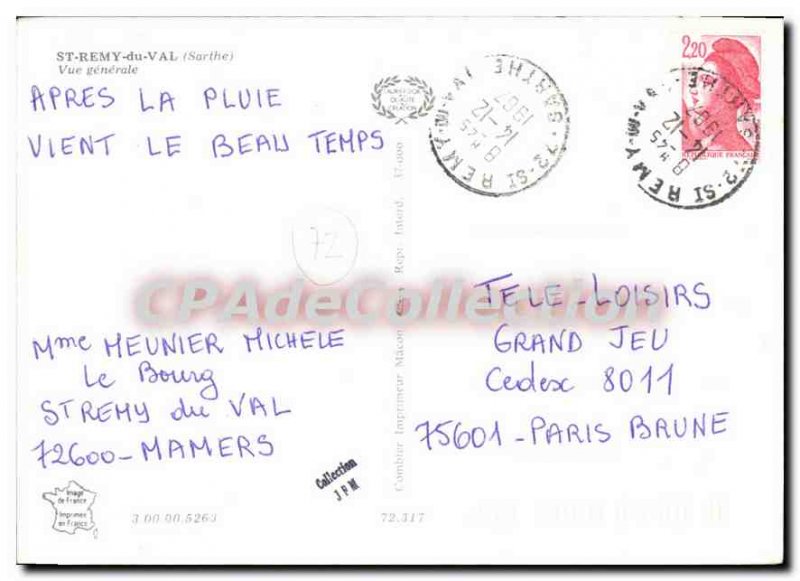 ST-REMY-du-VAL (Sarthe)
Vue générale
APRES LA PLUIE
VIENT LE BEAU TEMPS
72
Mme MEUNIER MICHELE
Le Bourg
ST REMY du VAL
72600-MAMERS
Image
de France
Imprimée
en France
3 00 00.5263
72.317
Collection
JPM
Combier Imprimeur Mâcon
Repr. Interd. 37-000
CPAdeCollection
2,20
RÉPUBLIQUE FRANÇAISE
72-ST REMY
SARTHE
14-12
1987
14-12
TELE-LOISIRS
GRAND JEU
Cedex 8011
75601-PARIS BRUNE